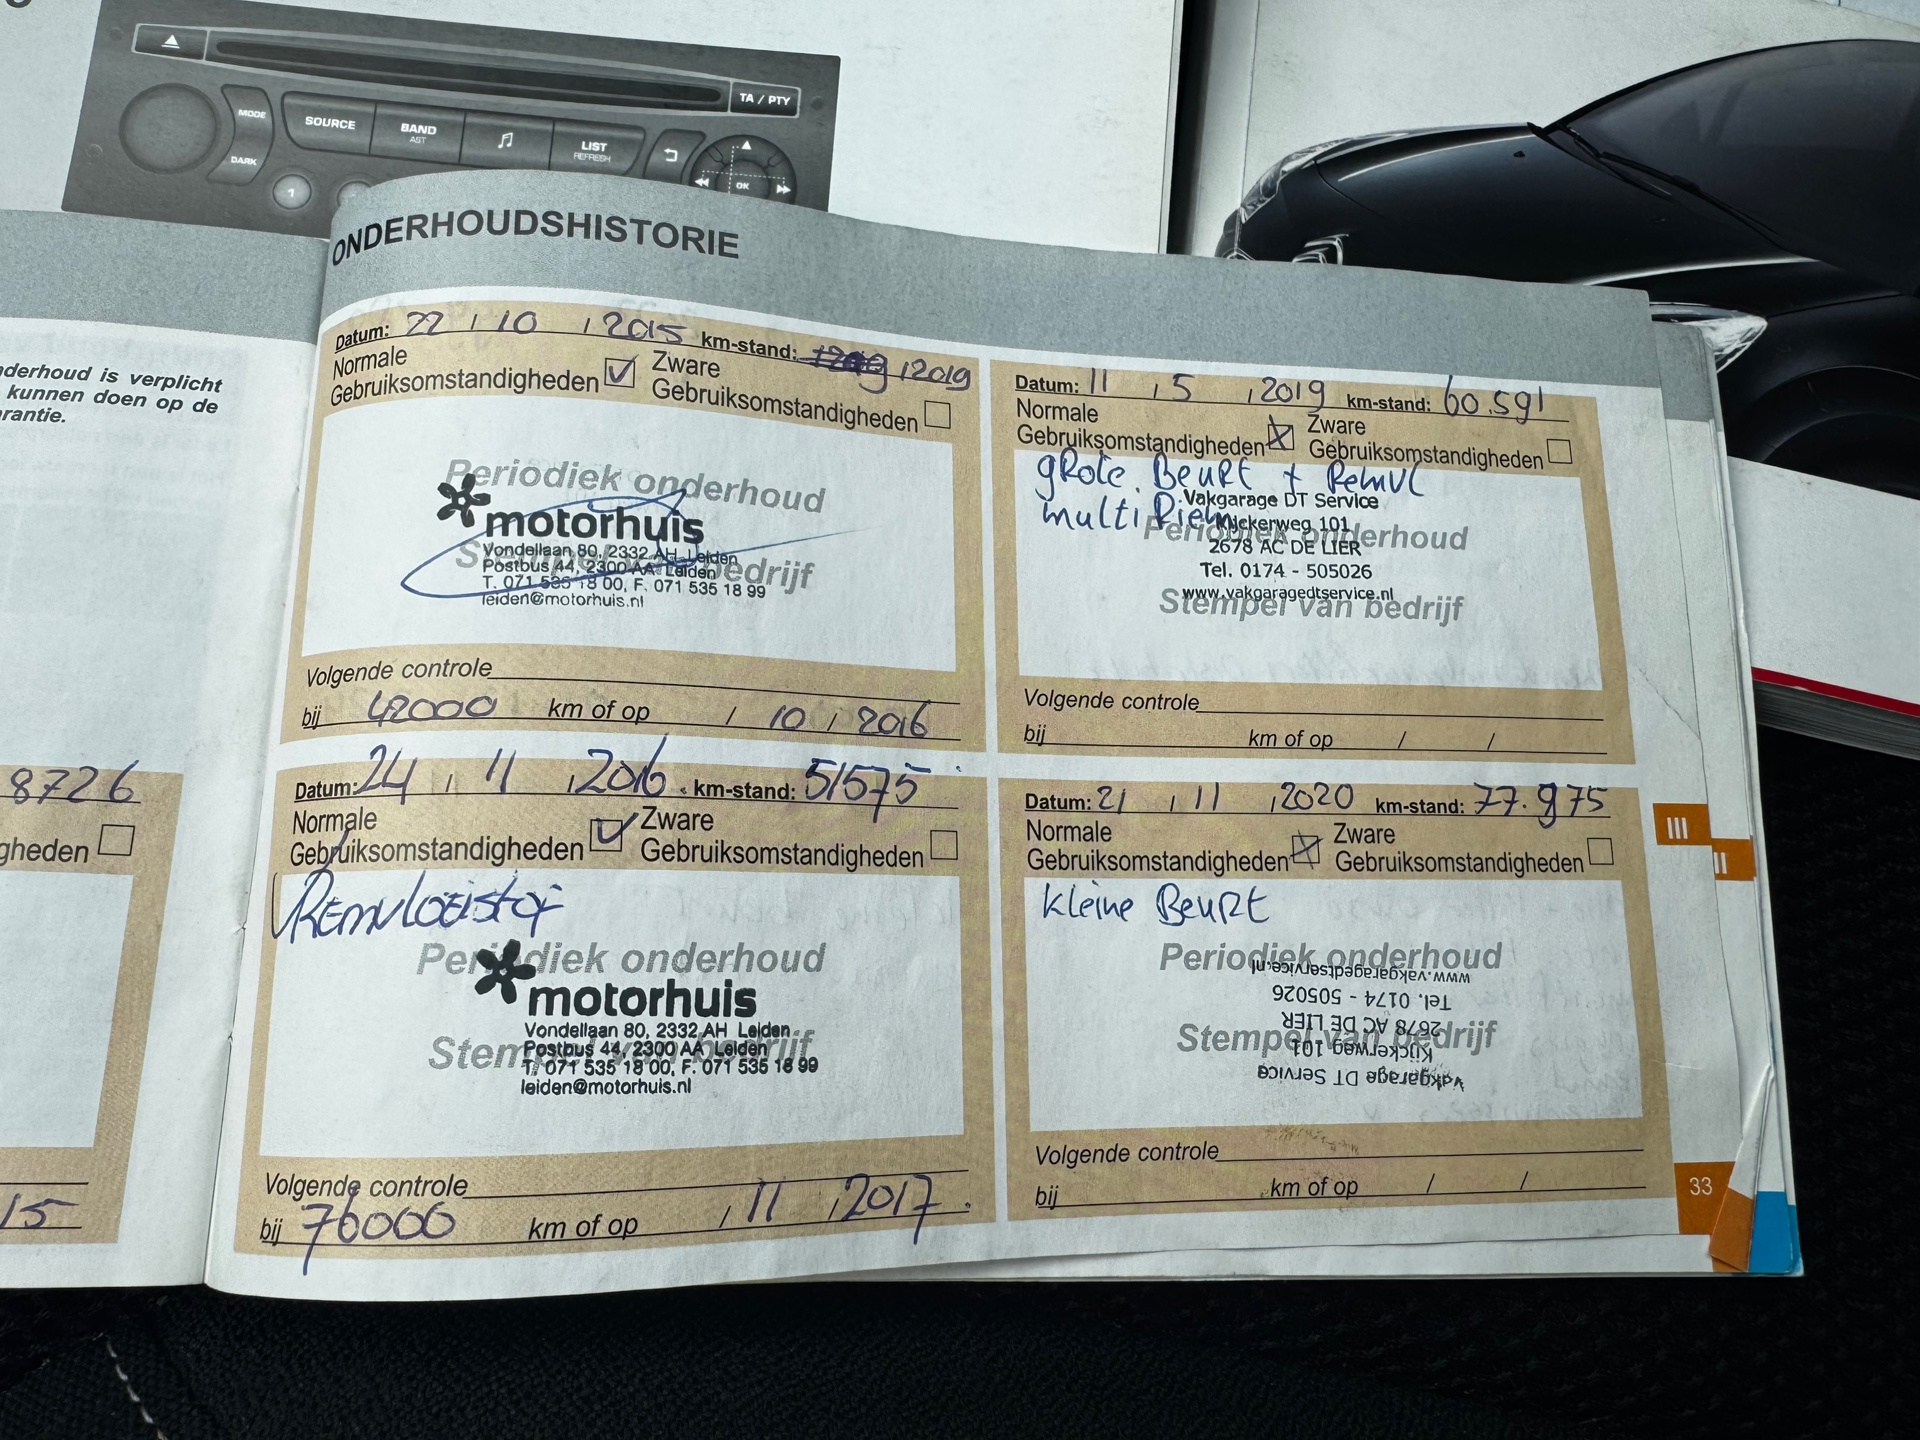 MODE
DARK
SOURCE
BAND
AST
LIST
REFRESH
TA / PTY
OK
1
ONDERHOUDSHISTORIE
nderhoud is verplicht
kunnen doen op de
rantie.
8726
gheden
15
Datum: 22 / 10 / 2015 km-stand: 12019
Normale
Gebruiksomstandigheden
Zware
Gebruiksomstandigheden
Periodiek onderhoud
motorhuis
Stempel van bedrijf
Vondellaan 80, 2332 AH Leiden
Postbus 44, 2300 AA Leiden
T. 071 535 18 00, F. 071 535 18 99
leiden@motorhuis.nl
Volgende controle
bij 42000 km of op / 10 / 2016
Datum: 24 / 11 / 2016 km-stand: 51575
Normale
Gebruiksomstandigheden
Zware
Gebruiksomstandigheden
Remvloeistof
Periodiek onderhoud
motorhuis
Stempel van bedrijf
Vondellaan 80, 2332 AH Leiden
Postbus 44, 2300 AA Leiden
T. 071 535 18 00, F. 071 535 18 99
leiden@motorhuis.nl
Volgende controle
bij 76000 km of op / 11 / 2017.
Datum: 11 / 5 / 2019 km-stand: 60.591
Normale
Gebruiksomstandigheden
Zware
Gebruiksomstandigheden
grote Beurt + Remvl
multi Riem
Vakgarage DT Service
Kijckerweg 101
Periodiek onderhoud
2678 AC DE LIER
Tel. 0174 - 505026
www.vakgaragedtservice.nl
Stempel van bedrijf
Volgende controle
bij km of op / /
Datum: 21 / 11 / 2020 km-stand: 77.975
Normale
Gebruiksomstandigheden
Zware
Gebruiksomstandigheden
Kleine Beurt
Periodiek onderhoud
Stempel van bedrijf
Vakgarage DT Service
Kijckerweg 101
2678 AC DE LIER
Tel. 0174 - 505026
www.vakgaragedtservice.nl
Volgende controle
bij km of op / /
III
II
33